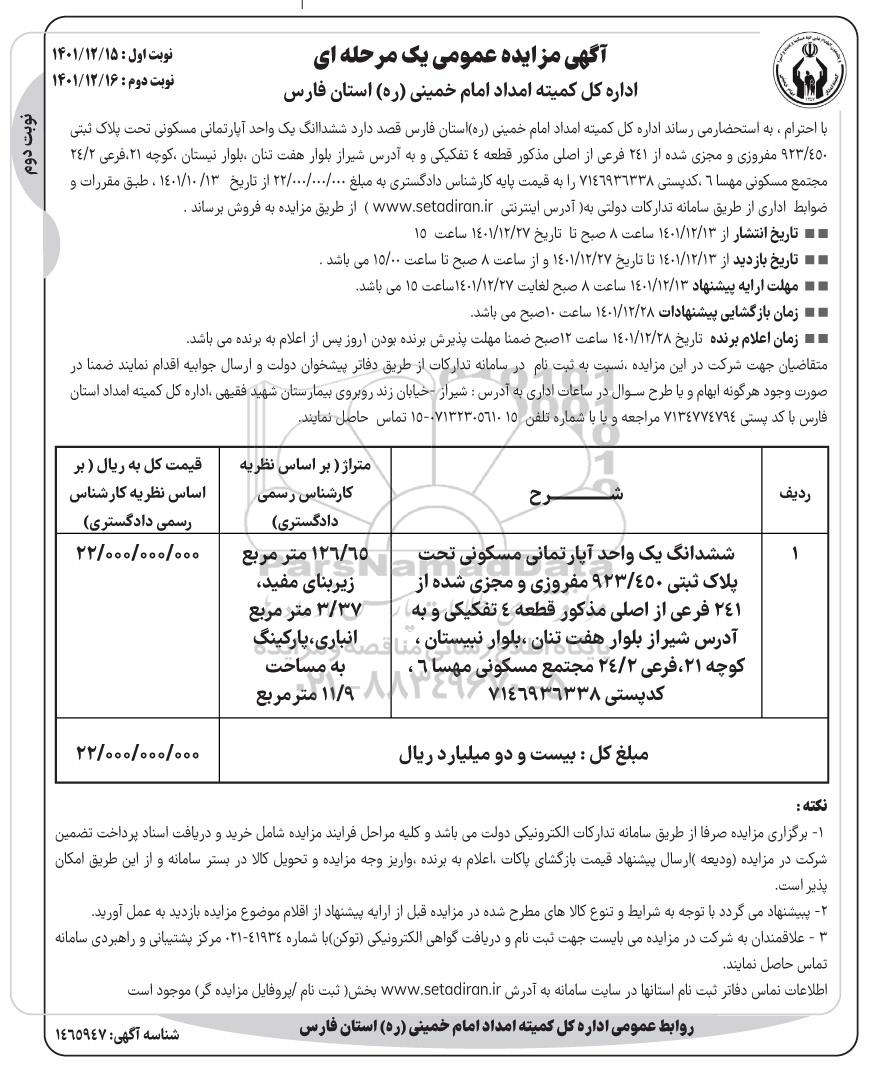 آگهی مزایده عمومی یک مرحله ای
اداره کل کمیته امداد امام خمینی (ره) استان فارس
نوبت اول : ۱۴۰۱/۱۲/۱۵
نوبت دوم : ۱۴۰۱/۱۲/۱۶
نوبت دوم
با احترام ، به استحضارمی رساند اداره کل کمیته امداد امام خمینی (ره)استان فارس قصد دارد ششداانگ یک واحد آپارتمانی مسکونی تحت پلاک ثبتی
۹۲۳/٤٥۰ مفروزی و مجزی شده از ۲٤۱ فرعی از اصلی مذکور قطعه ٤ تفکیکی و به آدرس شیراز بلوار هفت تنان ،بلوار نیستان ،کوچه ۲۱،فرعی ۲٤/۲
مجتمع مسکونی مهسا ٦ ،کدپستی ۷۱٤٦۹۳٦۳۳۸ را به قیمت پایه کارشناس دادگستری به مبلغ ۲۲/۰۰۰/۰۰۰/۰۰۰ از تاریخ ۱٤۰۱/۱۰/۱۳ ، طبق مقررات و
ضوابط اداری از طریق سامانه تدارکات دولتی به( آدرس اینترنتی www.setadiran.ir ) از طریق مزایده به فروش برساند .
■■ تاریخ انتشار از ۱٤۰۱/۱۲/۱۳ ساعت ۸ صبح تا تاریخ ۱٤۰۱/۱۲/۲۷ ساعت ۱٥
■■ تاریخ بازدید از ۱٤۰۱/۱۲/۱۳ تا تاریخ ۱٤۰۱/۱۲/۲۷ و از ساعت ۸ صبح تا ساعت ۱٥/۰۰ می باشد .
■■ مهلت ارایه پیشنهاد ۱٤۰۱/۱۲/۱۳ ساعت ۸ صبح لغایت ۱٤۰۱/۱۲/۲۷ساعت ۱٥ می باشد.
■■ زمان بازگشایی پیشنهادات ۱٤۰۱/۱۲/۲۸ ساعت ۱۰صبح می باشد.
■■ زمان اعلام برنده تاریخ ۱٤۰۱/۱۲/۲۸ ساعت ۱۲صبح ضمنا مهلت پذیرش برنده بودن ۱روز پس از اعلام به برنده می باشد.
متقاضیان جهت شرکت در این مزایده ،نسبت به ثبت نام در سامانه تدارکات از طریق دفاتر پیشخوان دولت و ارسال جوابیه اقدام نمایند ضمنا در
صورت وجود هرگونه ابهام و یا طرح سوال در ساعات اداری به آدرس : شیراز -خیابان زند روبروی بیمارستان شهید فقیهی ،اداره کل کمیته امداد استان
فارس با کد پستی ۷۱۳٤۷۷٤۷۹٤ مراجعه و یا با شماره تلفن ۱٥ ۰۷۱۳۲۳۰٥٦۱۰-۱٥ تماس حاصل نمایند.
ردیف
شـــــــــرح
متراژ ( بر اساس نظریه
کارشناس رسمی
دادگستری)
قیمت کل به ریال ( بر
اساس نظریه کارشناس
رسمی دادگستری)
۱
ششدانگ یک واحد آپارتمانی مسکونی تحت
پلاک ثبتی ۹۲۳/٤٥۰ مفروزی و مجزی شده از
۲٤۱ فرعی از اصلی مذکور قطعه ٤ تفکیکی و به
آدرس شیراز بلوار هفت تنان ،بلوار نبیستان ،
کوچه ۲۱،فرعی ۲٤/۲ مجتمع مسکونی مهسا ٦ ،
کدپستی ۷۱٤٦۹۳٦۳۳۸
۱۲٦/٦٥ متر مربع
زیربنای مفید،
۳/۳۷ متر مربع
انباری،پارکینگ
به مساحت
۱۱/۹ مترمربع
۲۲/۰۰۰/۰۰۰/۰۰۰
مبلغ کل : بیست و دو میلیارد ریال
۲۲/۰۰۰/۰۰۰/۰۰۰
ParsNamadData
پایگاه اطلاع رسانی مناقصه و مزایده
۰۲۱-۸۸۳۴۹۶۷۰-۵
نکته :
۱- برگزاری مزایده صرفا از طریق سامانه تدارکات الکترونیکی دولت می باشد و کلیه مراحل فرایند مزایده شامل خرید و دریافت اسناد پرداخت تضمین
شرکت در مزایده (ودیعه )ارسال پیشنهاد قیمت بازگشای پاکات ،اعلام به برنده ،واریز وجه مزایده و تحویل کالا در بستر سامانه و از این طریق امکان
پذیر است.
۲- پبیشنهاد می گردد با توجه به شرایط و تنوع کالا های مطرح شده در مزایده قبل از ارایه پیشنهاد از اقلام موضوع مزایده بازدید به عمل آورید.
۳ - علاقمندان به شرکت در مزایده می بایست جهت ثبت نام و دریافت گواهی الکترونیکی (توکن)با شماره ۰۲۱-٤۱۹۳٤ مرکز پشتیبانی و راهبردی سامانه
تماس حاصل نمایند.
اطلاعات تماس دفاتر ثبت نام استانها در سایت سامانه به آدرش www.setadiran.ir بخش( ثبت نام /پروفایل مزایده گر) موجود است
روابط عمومی اداره کل کمیته امداد امام خمینی (ره) استان فارس
شناسه آگهی: ۱۴۶۵۹۴۷